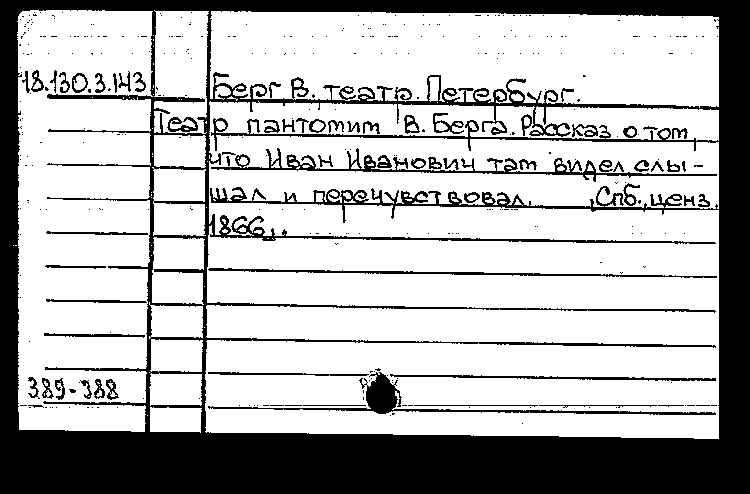 18.130.3.143
Берг, В. театр. Петербург.
Театр пантомим В. Берга. Рассказ о том,
что Иван Иванович там видел, слы-
шал и перечувствовал. , Спб., ценз.
1866, .
389-388